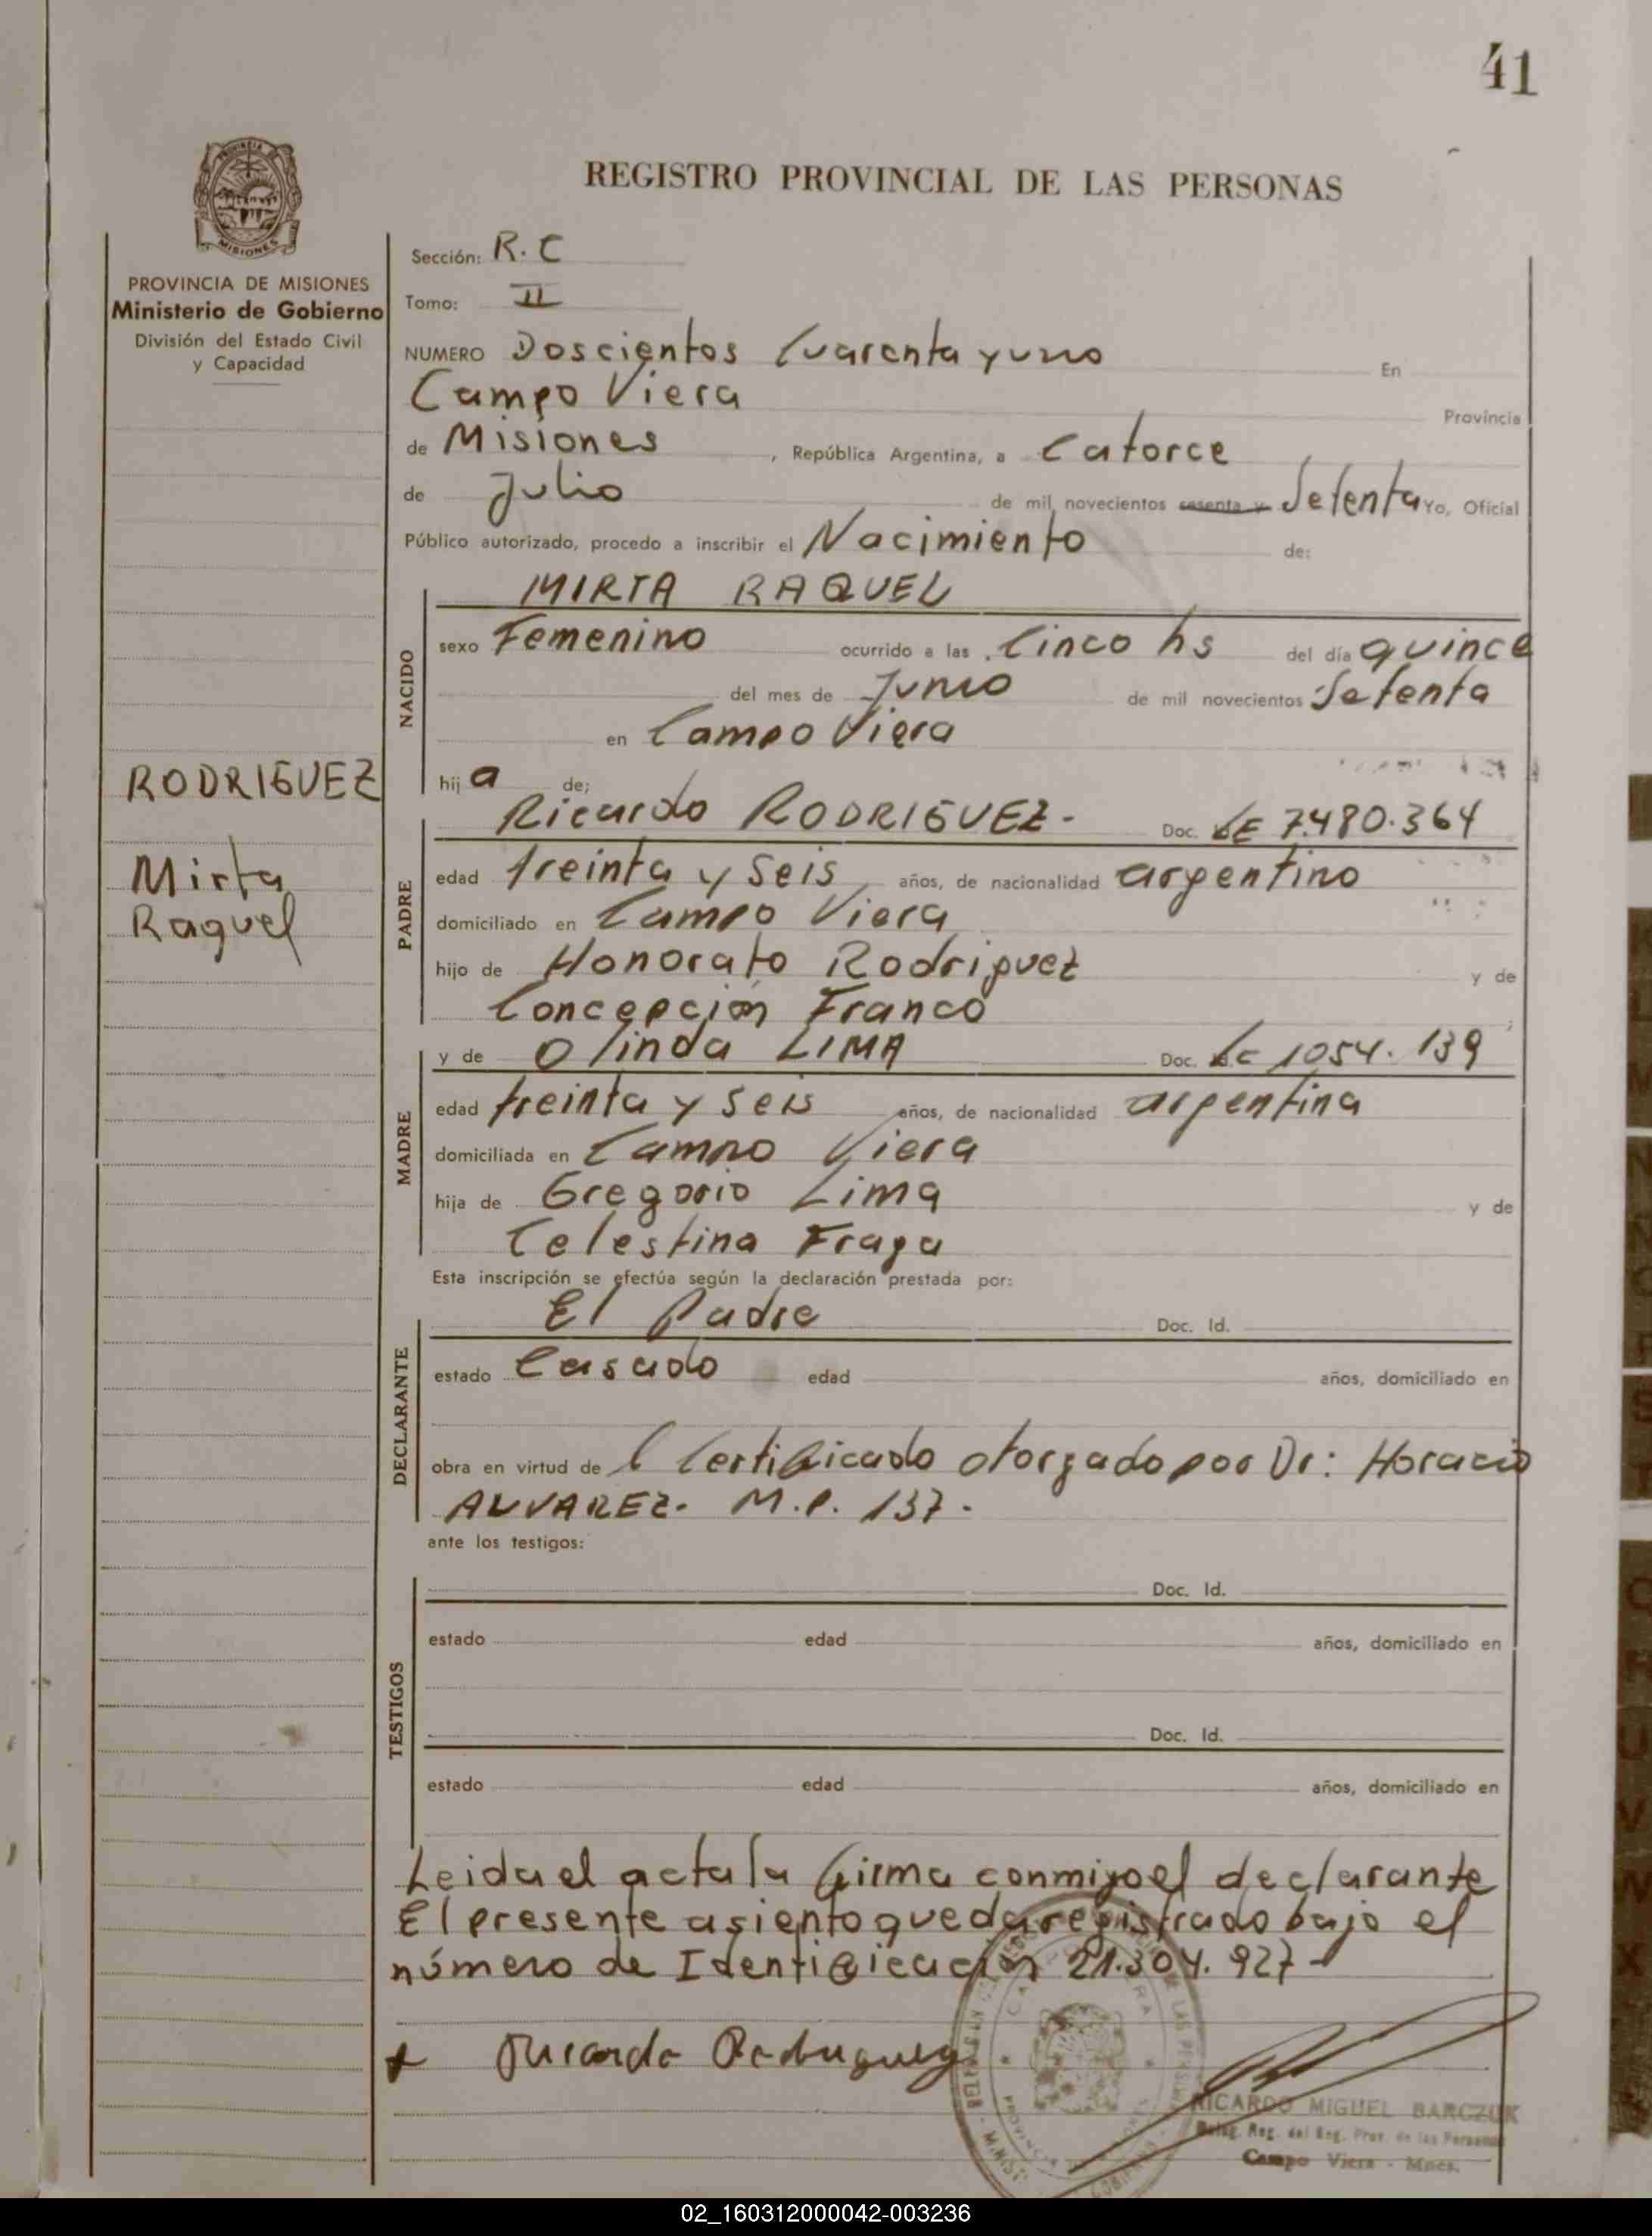 41
REGISTRO PROVINCIAL DE LAS PERSONAS
PROVINCIA DE
MISIONES
PROVINCIA DE MISIONES
Ministerio de Gobierno
División del Estado Civil
y Capacidad
Sección: R. C
Tomo: II
NUMERO Doscientos Cuarenta y uno En
Campo Viera Provincia
de Misiones, República Argentina, a Catorce
de Julio de mil novecientos sesenta y Setenta Yo, Oficial
Público autorizado, procedo a inscribir el Nacimiento de:
NACIDO
MIRTA RAQUEL
sexo Femenino ocurrido a las Cinco hs del día quince
del mes de Junio de mil novecientos Setenta
en Campo Viera
hij a de;
RODRIGUEZ
Mirta
Raquel
PADRE
Ricardo RODRIGUEZ- Doc. LE 7.480.364
edad treinta y Seis años, de nacionalidad argentino
domiciliado en Campo Viera
hijo de Honorato Rodriguez y de
Concepción Franco
MADRE
y de Olinda LIMA Doc. LC 1054.139
edad treinta y seis años, de nacionalidad argentina
domiciliada en Campo Viera
hija de Gregorio Lima y de
Celestina Fraga
Esta inscripción se efectúa según la declaración prestada por:
DECLARANTE
El Padre Doc. Id.
estado Casado edad años, domiciliado en
obra en virtud de l Certificado otorgado por Dr: Horacio
ALVAREZ. M.P. 137.
ante los testigos:
TESTIGOS
Doc. Id.
estado edad años, domiciliado en
Doc. Id.
estado edad años, domiciliado en
Leida el acta la firma conmigo el declarante
El presente asiento queda registrado bajo el
número de Identificación 21.304.927-
Ricardo Rodriguez
RICARDO MIGUEL BARCZUK
Deleg. Reg. del Reg. Prov. de las Personas
Campo Viera - Mnes.
02_160312000042-003236